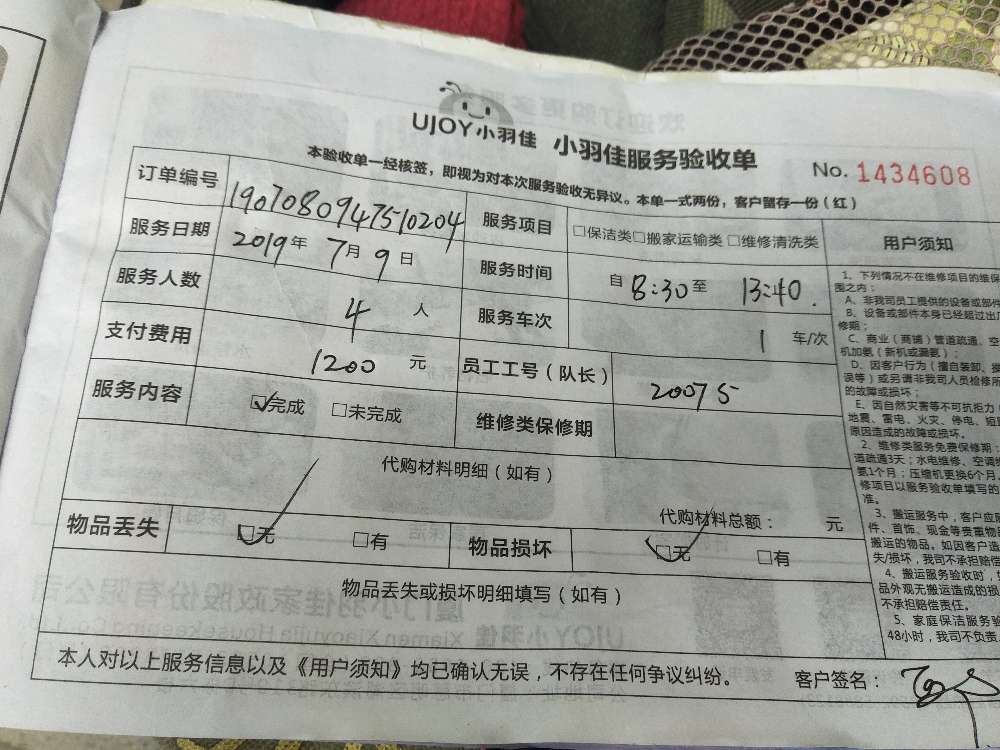 UJOY小羽佳 小羽佳服务验收单
No. 1434608
本验收单一经核签，即视为对本次服务验收无异议。本单一式两份，客户留存一份（红）
订单编号 1907080947510204 服务项目 □保洁类□搬家运输类 □维修清洗类
服务日期 2019年 7月 9日 服务时间 自 8:30 至 13:40.
服务人数 4 人 服务车次 1 车/次
支付费用 1200 元 员工工号（队长） 20075
服务内容 ☑完成 □未完成 维修类保修期
代购材料明细（如有）
代购材料总额： 元
物品丢失 ☑无 □有 物品损坏 ☑无 □有
物品丢失或损坏明细填写（如有）
本人对以上服务信息以及《用户须知》均已确认无误，不存在任何争议纠纷。 客户签名：
用户须知
1、下列情况不在维修项目的维保
围之内：
A、非我司员工提供的设备或部件
B、设备或部件本身已经超过出厂
修期；
C、商业（商铺）管道疏通、空
机加氨（新机或漏氨）；
D、因客户行为（擅自装卸、损
误等）或另请非我司人员检修所
的故障或损坏；
E、因自然灾害等不可抗拒力
地震、雷电、火灾、停电、短
原因造成的故障或损坏。
2、维修类服务免费保修期：
道疏通3天；水电维修、空调维
氨1个月；压缩机更换6个月
修项目以服务验收单填写的
准。
3、搬运服务中，客户应
件、首饰、现金等贵重物品
搬运的物品。如因客户造
失/损坏，我司不承担赔偿
4、搬运服务验收时，
品外观无搬运造成的损
不承担赔偿责任。
5、家庭保洁服务验
48小时，我司不负责